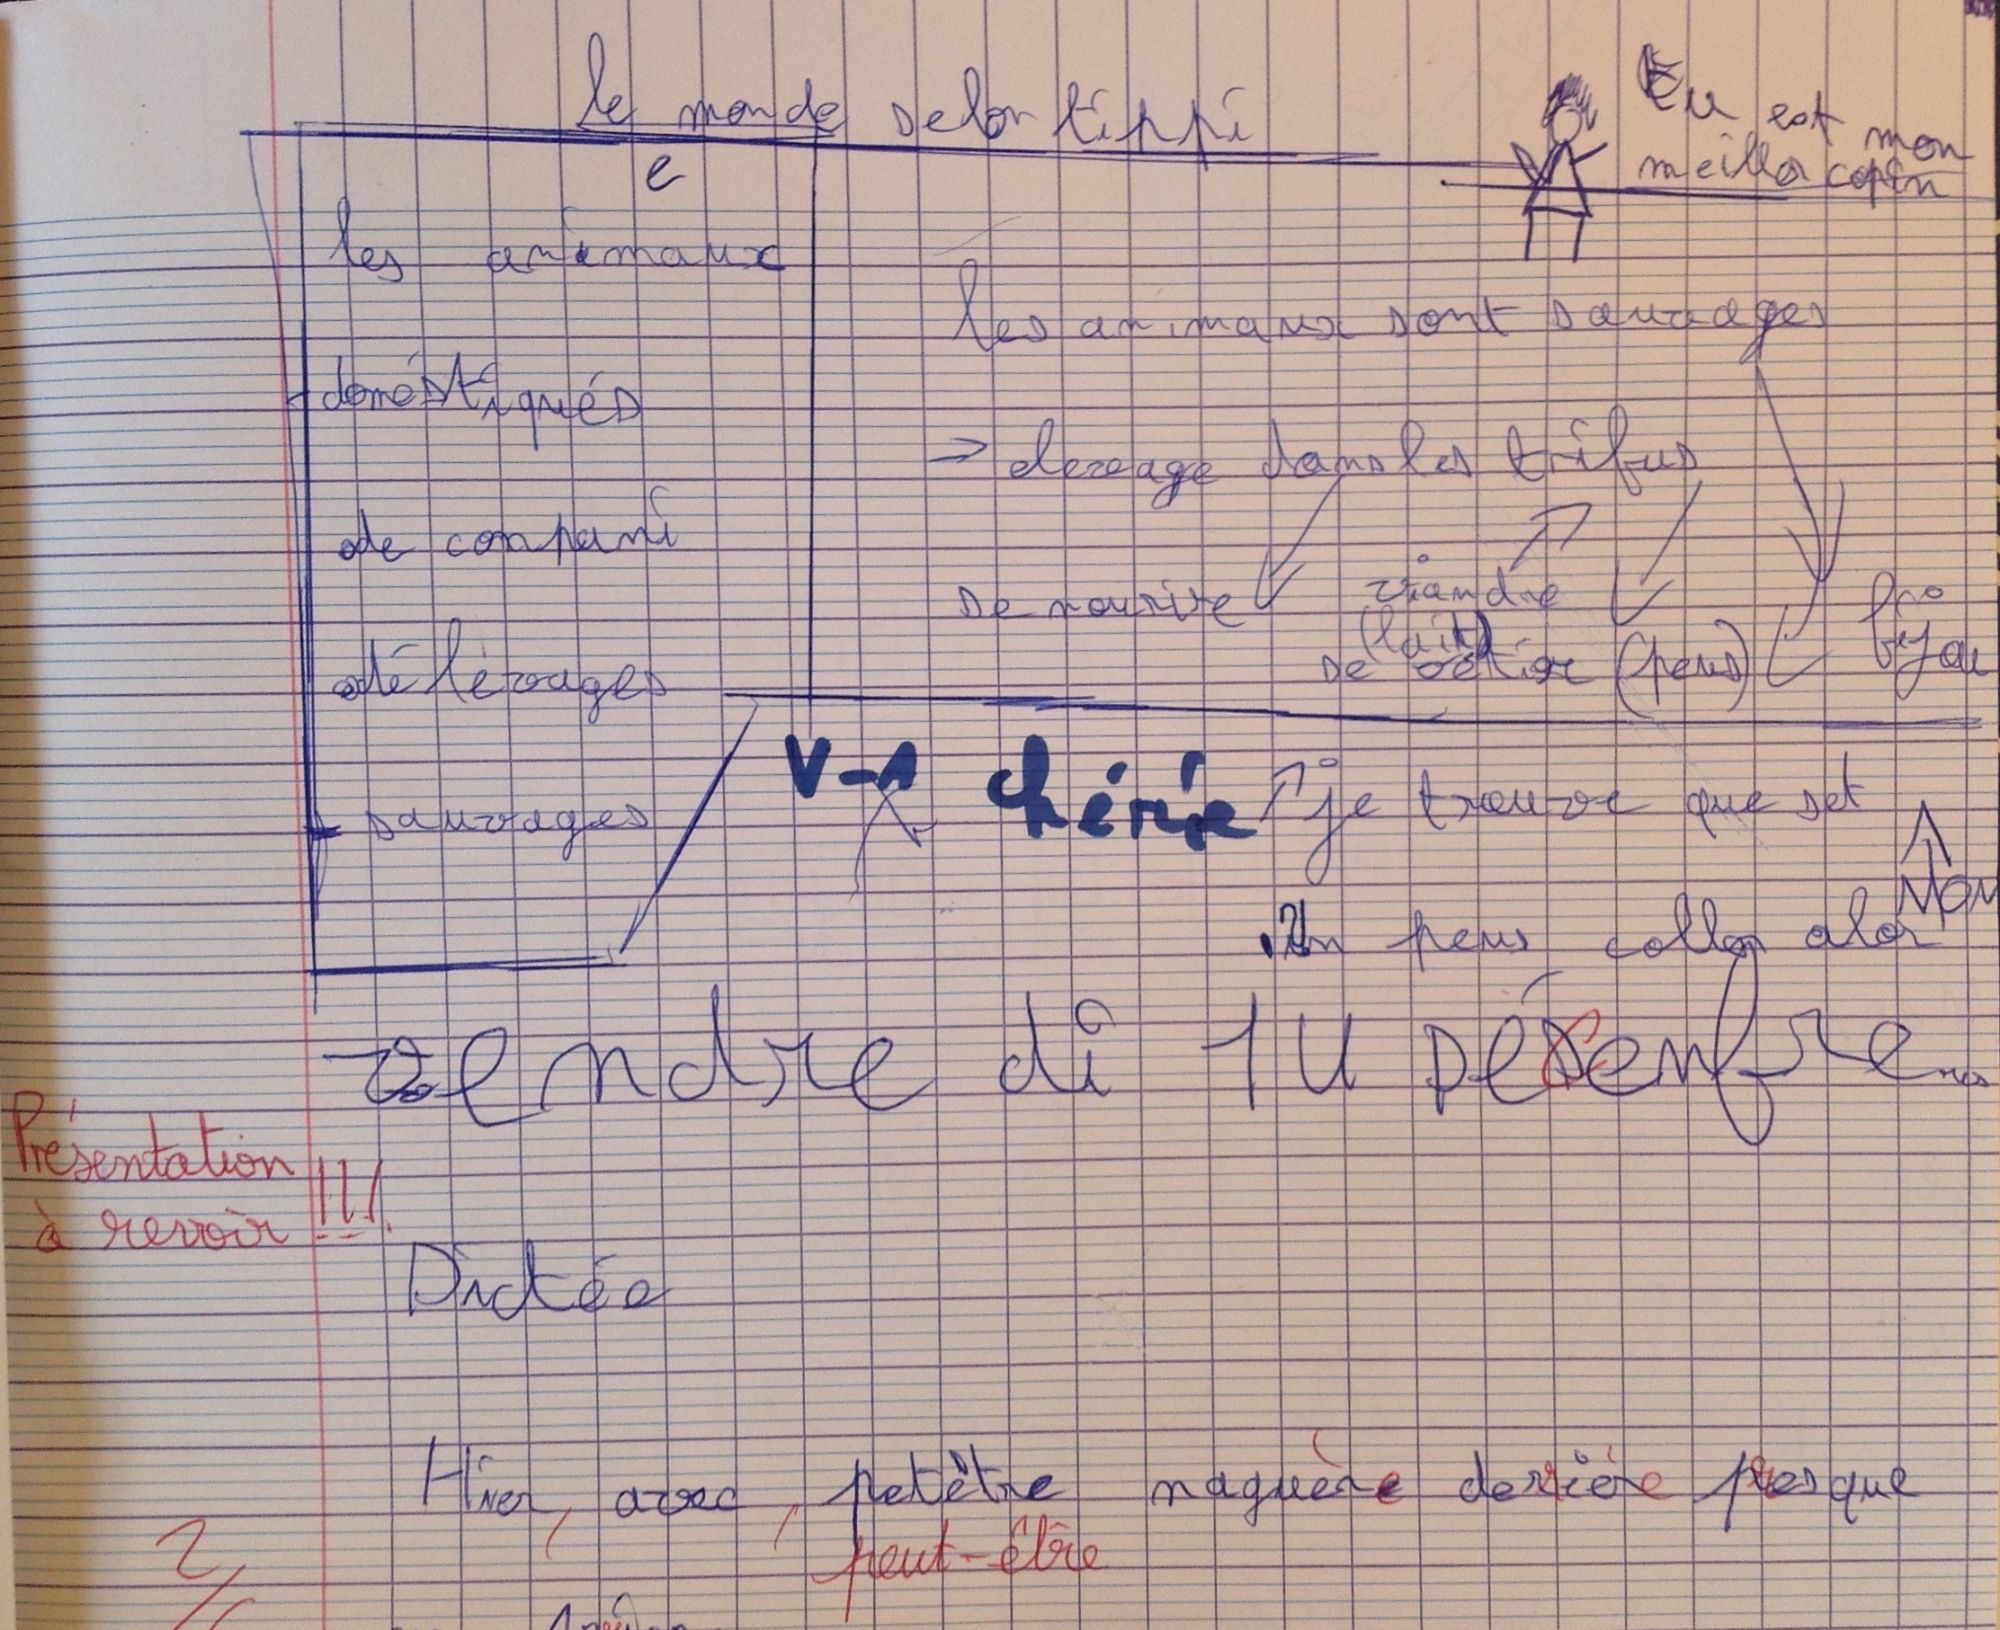 le monde selon tippi
tu est mon
meillor copin
e
les animaux
doméstiqués
de compani
délévages
sauvages
les animaux sont sauvages
→ elevage dans les tribus
se nourire
viandre
(lait)
se vétir (peus)
bijou
V-1 chérie
je trouve que set
un peus collon alor
NON
vendre di 14 désenfre
Présentation
à revoir !!!
Dictée
Hier, avec, petêtre naguère derrière presque
peut-être
2/